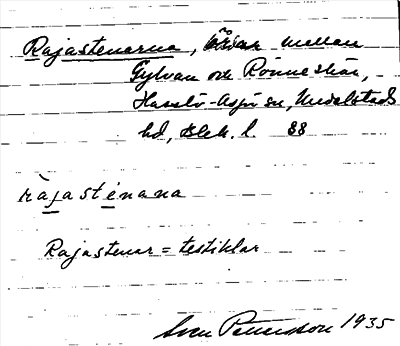 Rajastenarna, öar mellan
Gylvan och Rönneskär,
Hasslö-Aspö sn, Medelstads
hd, Blek. l. 88
ràjasténana
Rajastenar = testiklar
Sven Petersson 1935